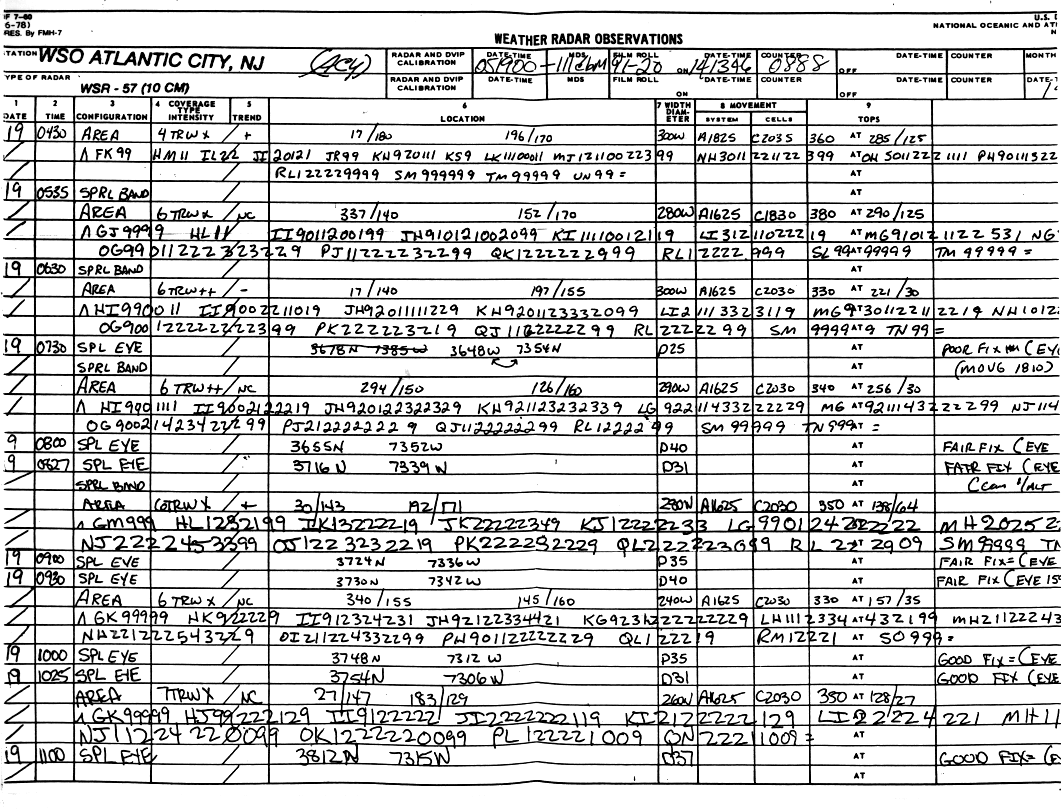 OF 7-60 U.S. D
6-78) NATIONAL OCEANIC AND AT
RES. By FMH-7 N
WEATHER RADAR OBSERVATIONS
TATION WSO ATLANTIC CITY, NJ (ACY) RADAR AND DVIP CALIBRATION DATE-TIME 051900 MDS FILM ROLL 91-20 ON DATE-TIME 141346 COUNTER 0888 OFF DATE-TIME COUNTER MONTH
YPE OF RADAR WSR - 57 (10 CM) RADAR AND DVIP CALIBRATION DATE-TIME MDS FILM ROLL ON DATE-TIME COUNTER OFF DATE-TIME COUNTER
1 DATE 2 TIME 3 CONFIGURATION 4 COVERAGE TYPE INTENSITY 5 TREND 6 LOCATION 7 WIDTH DIAMETER 8 MOVEMENT SYSTEM CELLS 9 TOPS
19 0430 AREA 4 TRWX / + 17/180 196/170 300W A1825 C2035 360 AT 285/125
/ ^ FK99 HM11 IL22 JI20121 JR99 KH920111 KS9 LK11100011 MJ121100223 99 NH3011 221122 399 AT OH 5011222 1111 PH9011522
RL122229999 SM 999999 TM 99999 UN99= AT
19 0535 SPRL BAND AT
/ AREA 6 TRWX / NC 337/140 152/170 280W A1625 C1830 380 AT 290/125
/ ^ GJ9999 HL11 II9011200199 JH910121002099 KI1111001211 19 LI31211022219 AT MG910121122 531 NG
OG99 011222323229 PJ11222232299 QK1222222999 RL12222 999 SL99 AT 99999 TM 9999=
19 0630 SPRL BAND AT
/ AREA 6 TRW++ / - 17/140 197/155 300W A1625 C2030 330 AT 221/30
/ ^ HI990011 II9002211019 JH92011111229 KH9201123332099 LI2111332 3119 MG9 AT 3011221122 19 NH10122
OG900 122222222399 PK222223219 QJ11022222299 RL2222299 SM 9999 AT 9 TN99=
19 0730 SPL EYE 3678N 7385W 3648W 7354N D25 AT POOR FIX (EYE
SPRL BAND AT (MOVG 1810)
/ AREA 6 TRW++ / NC 294/150 126/160 290W A1625 C2030 340 AT 256/30
/ ^ HI990 1111 II9002122219 JH920122322329 KH921123232339 LG922114333222229 MG AT 9211143222299 NJ114
OG9002142342222299 PJ212222222 9 QJ1122222299 RL12222 99 SM 99999 TN999 AT =
9 0800 SPL EYE 3655N 7352W D40 AT FAIR FIX (EYE
9 0827 SPL EYE 3716N 7339W D31 AT FAIR FIX (EYE
SPRL BAND AT
/ AREA TRWX / + 30/143 192/171 280W A1625 C2030 350 AT 138/64
/ ^ GM999 HL1232199 IK132222219 JK22222349 KJ12222233 LG990124 MH2025
NJ222 PK222232229 SM99999 TN
19 0900 SPL EYE 3724N 7336W D35 AT FAIR FIX= (EYE
19 0930 SPL EYE 3730N 7342W D40 AT FAIR FIX (EYE 15
/ AREA 6 TRWX / NC 340/155 145/160 240W A1625 C2030 330 AT 157/35
/ ^ GK99999 HK922229 II912324231 JH92122334421 KG923 LH1112334 AT 432199 MH21122243
NH221222543229 OI211224333299 PH901122222229 QL1222219 RM12221 AT SO999=
19 1000 SPL EYE 3748N 7312W D35 AT GOOD FIX= (EYE
19 1025 SPL EYE 3754N 7306W D31 AT GOOD FIX (EYE
/ AREA 7 TRWX / NC 27/147 183/129 260W A1625 C2030 350 AT 128/27
/ ^ GK99999 HJ99222129 II9122222 JI2222222119 KI2122222129 LI22224 221 MH11
NJ11224220099 OK1222220099 PL122221009 QN22211009=
19 1100 SPL EYE 3812N 7315W D37 AT GOOD FIX= (E
AT